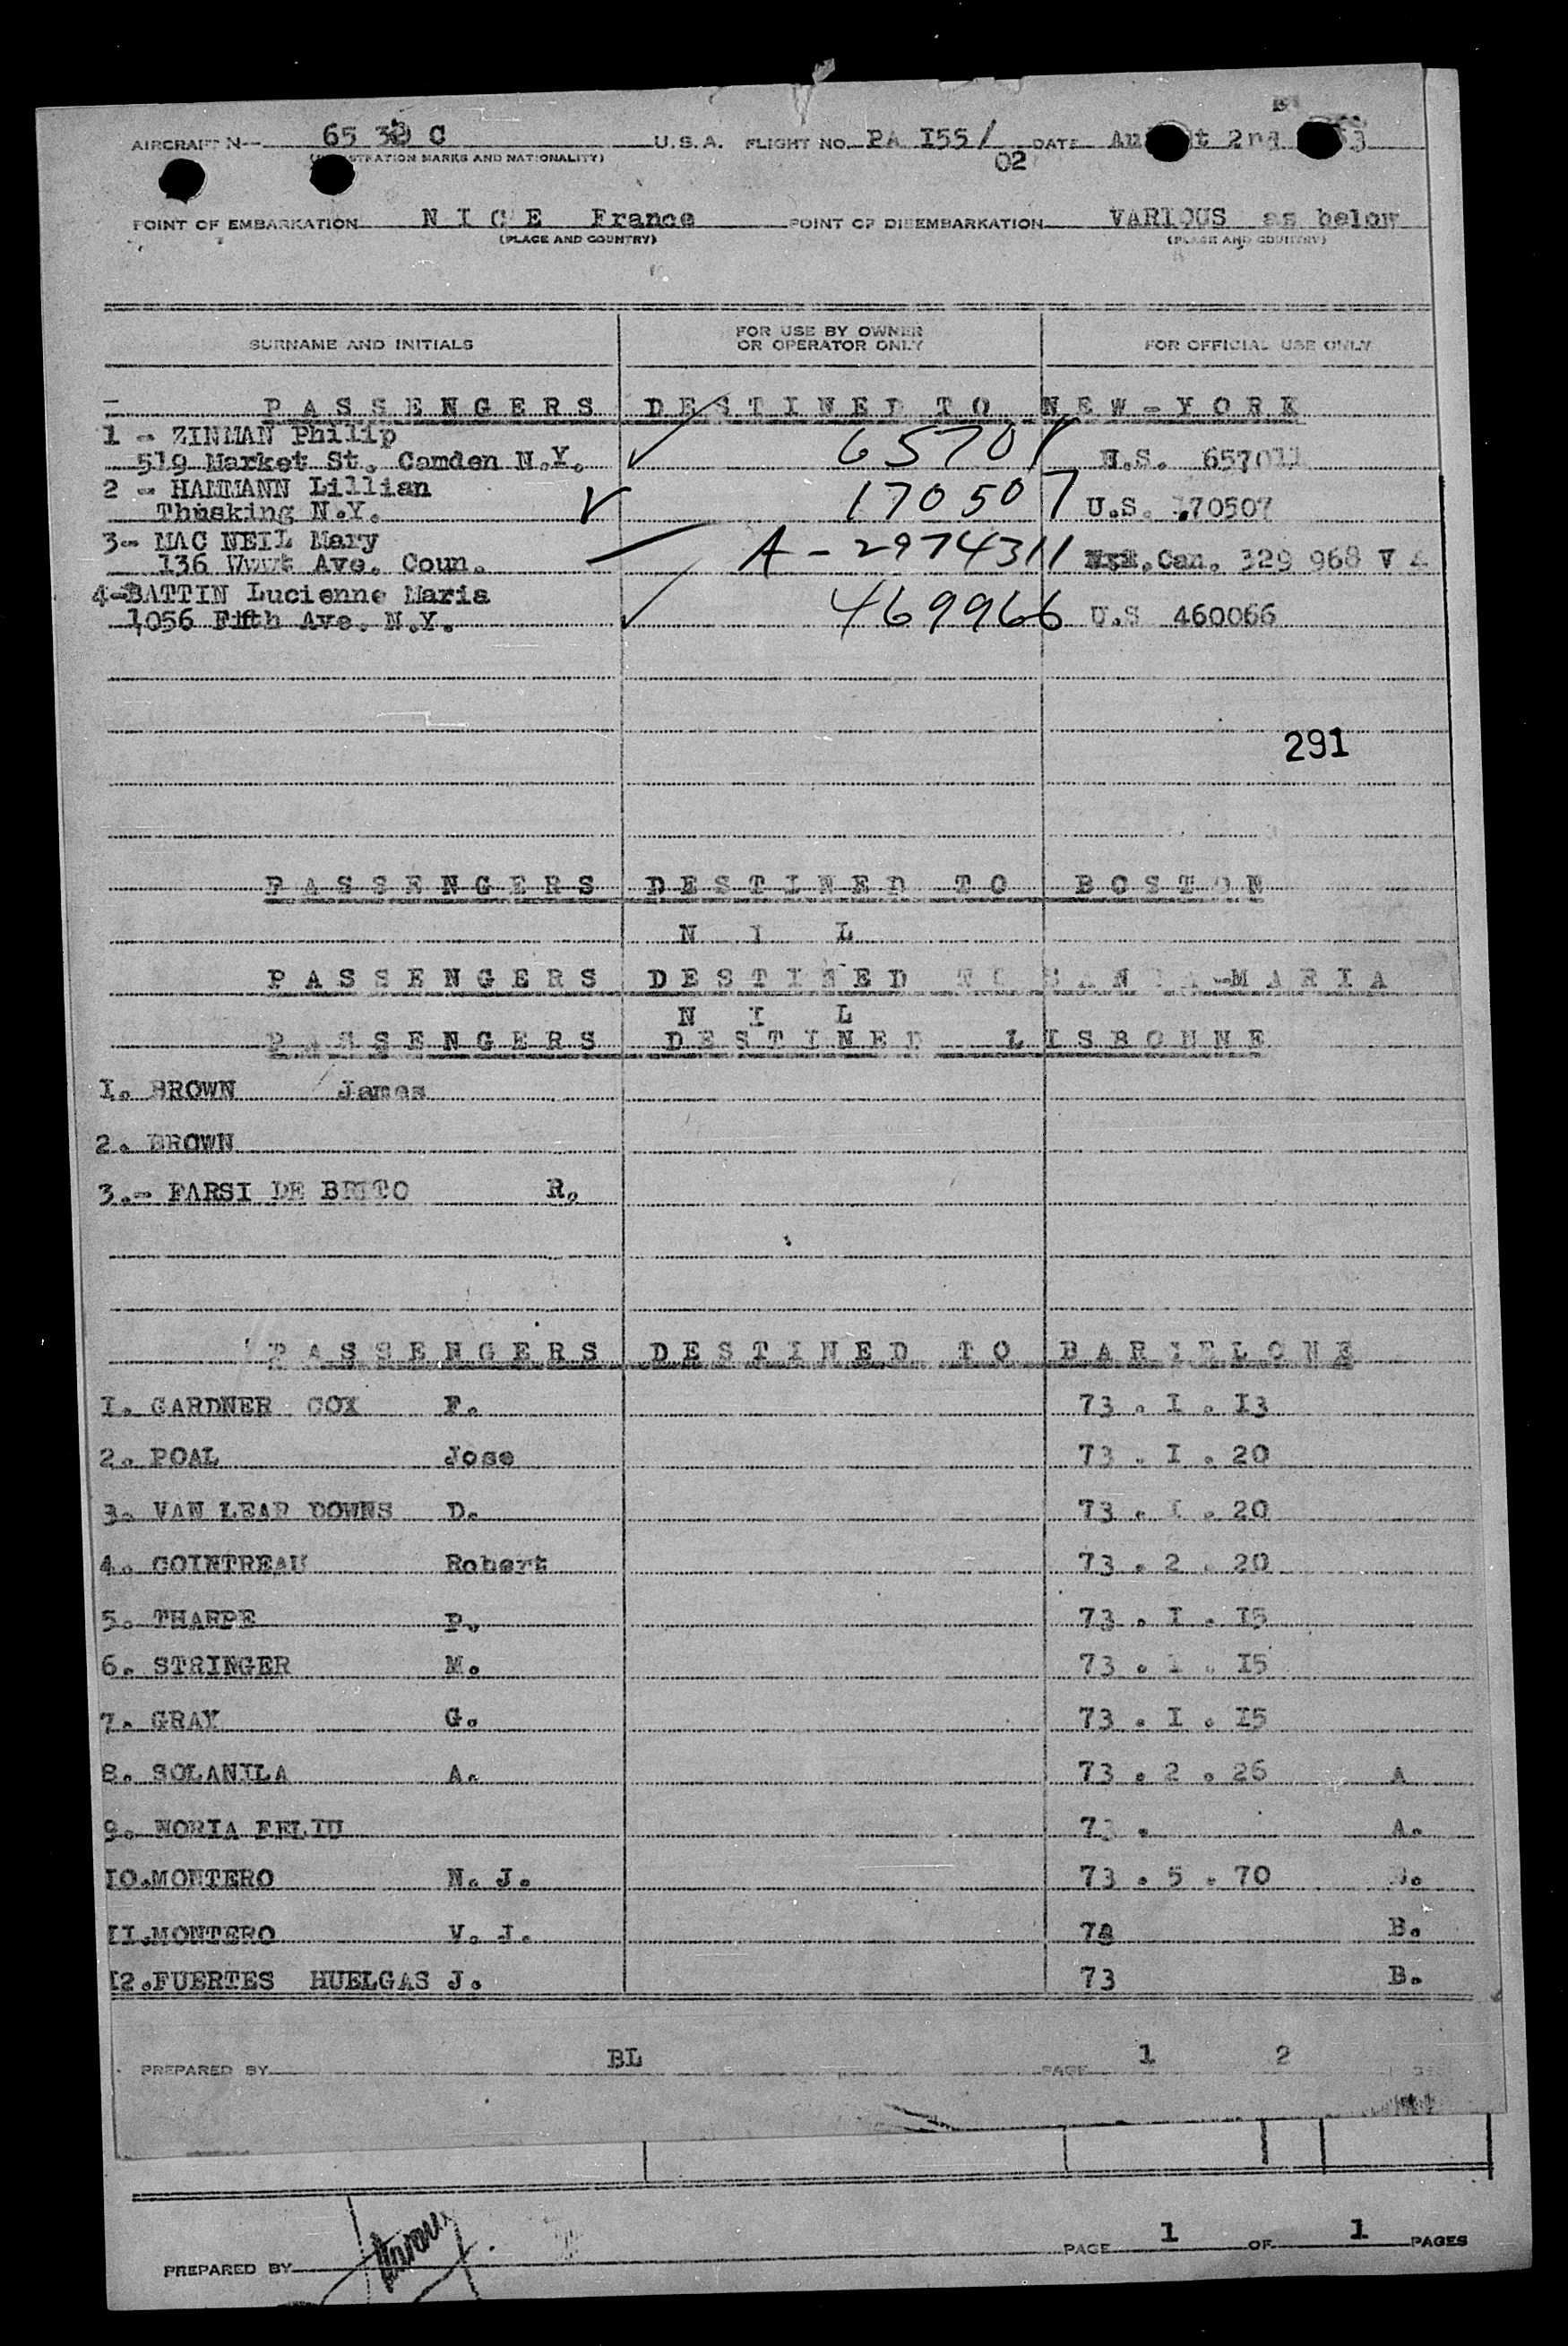 AIRCRAFT N 65 38 C U.S.A. FLIGHT NO. PA I55/ DATE 2nd
(REGISTRATION MARKS AND NATIONALITY) 02
POINT OF EMBARKATION N I C E France POINT OF DISEMBARKATION VARIOUS as below
(PLACE AND COUNTRY) (PLACE AND COUNTRY)
SURNAME AND INITIALS FOR USE BY OWNER OR OPERATOR ONLY FOR OFFICIAL USE ONLY
P A S S E N G E R S D E S T I N E D T O N E W - Y O R K
1 - ZINMAN Philip
519 Market St. Camden N.Y. 65701 U.S. 657011
2 - HAMMANN Lillian
Thusking N.Y. 170507 U.S. 170507
3- MAC NEIL Mary
136 Ave. Coun. A-2974311 Can. 329 968 V
4-BATTIN Lucienne Maria
1056 Fifth Ave. N.Y. 469966 U.S 460066
291
P A S S E N G E R S D E S T I N E D T O B O S T O N
N I L
P A S S E N G E R S D E S T I N E D T O S A N T A - M A R I A
N I L
P A S S E N G E R S D E S T I N E D L I S B O N N E
I. BROWN James
2. BROWN
3.- FARSI DE BRITO R.
P A S S E N G E R S D E S T I N E D T O B A R C E L O N E
I. GARDNER COX F. 73 . I . I3
2. POAL Jose 73 . I . 20
3. VAN LEAR DOWNS D. 73 . I . 20
4. COINTREAU Robert 73 . 2 . 20
5. THARPE P. 73 . I . I5
6. STRINGER M. 73 . I . I5
7. GRAY G. 73 . I . I5
8. SOLANILA A. 73 . 2 . 26 A
9. NORIA FELIU 73 . A.
IO.MONTERO N. J. 73 . 5 . 70
II.MONTERO V. J. 73 B.
I2.FUERTES HUELGAS J. 73 B.
PREPARED BY BL PAGE 1 2
PREPARED BY PAGE 1 OF 1 PAGES